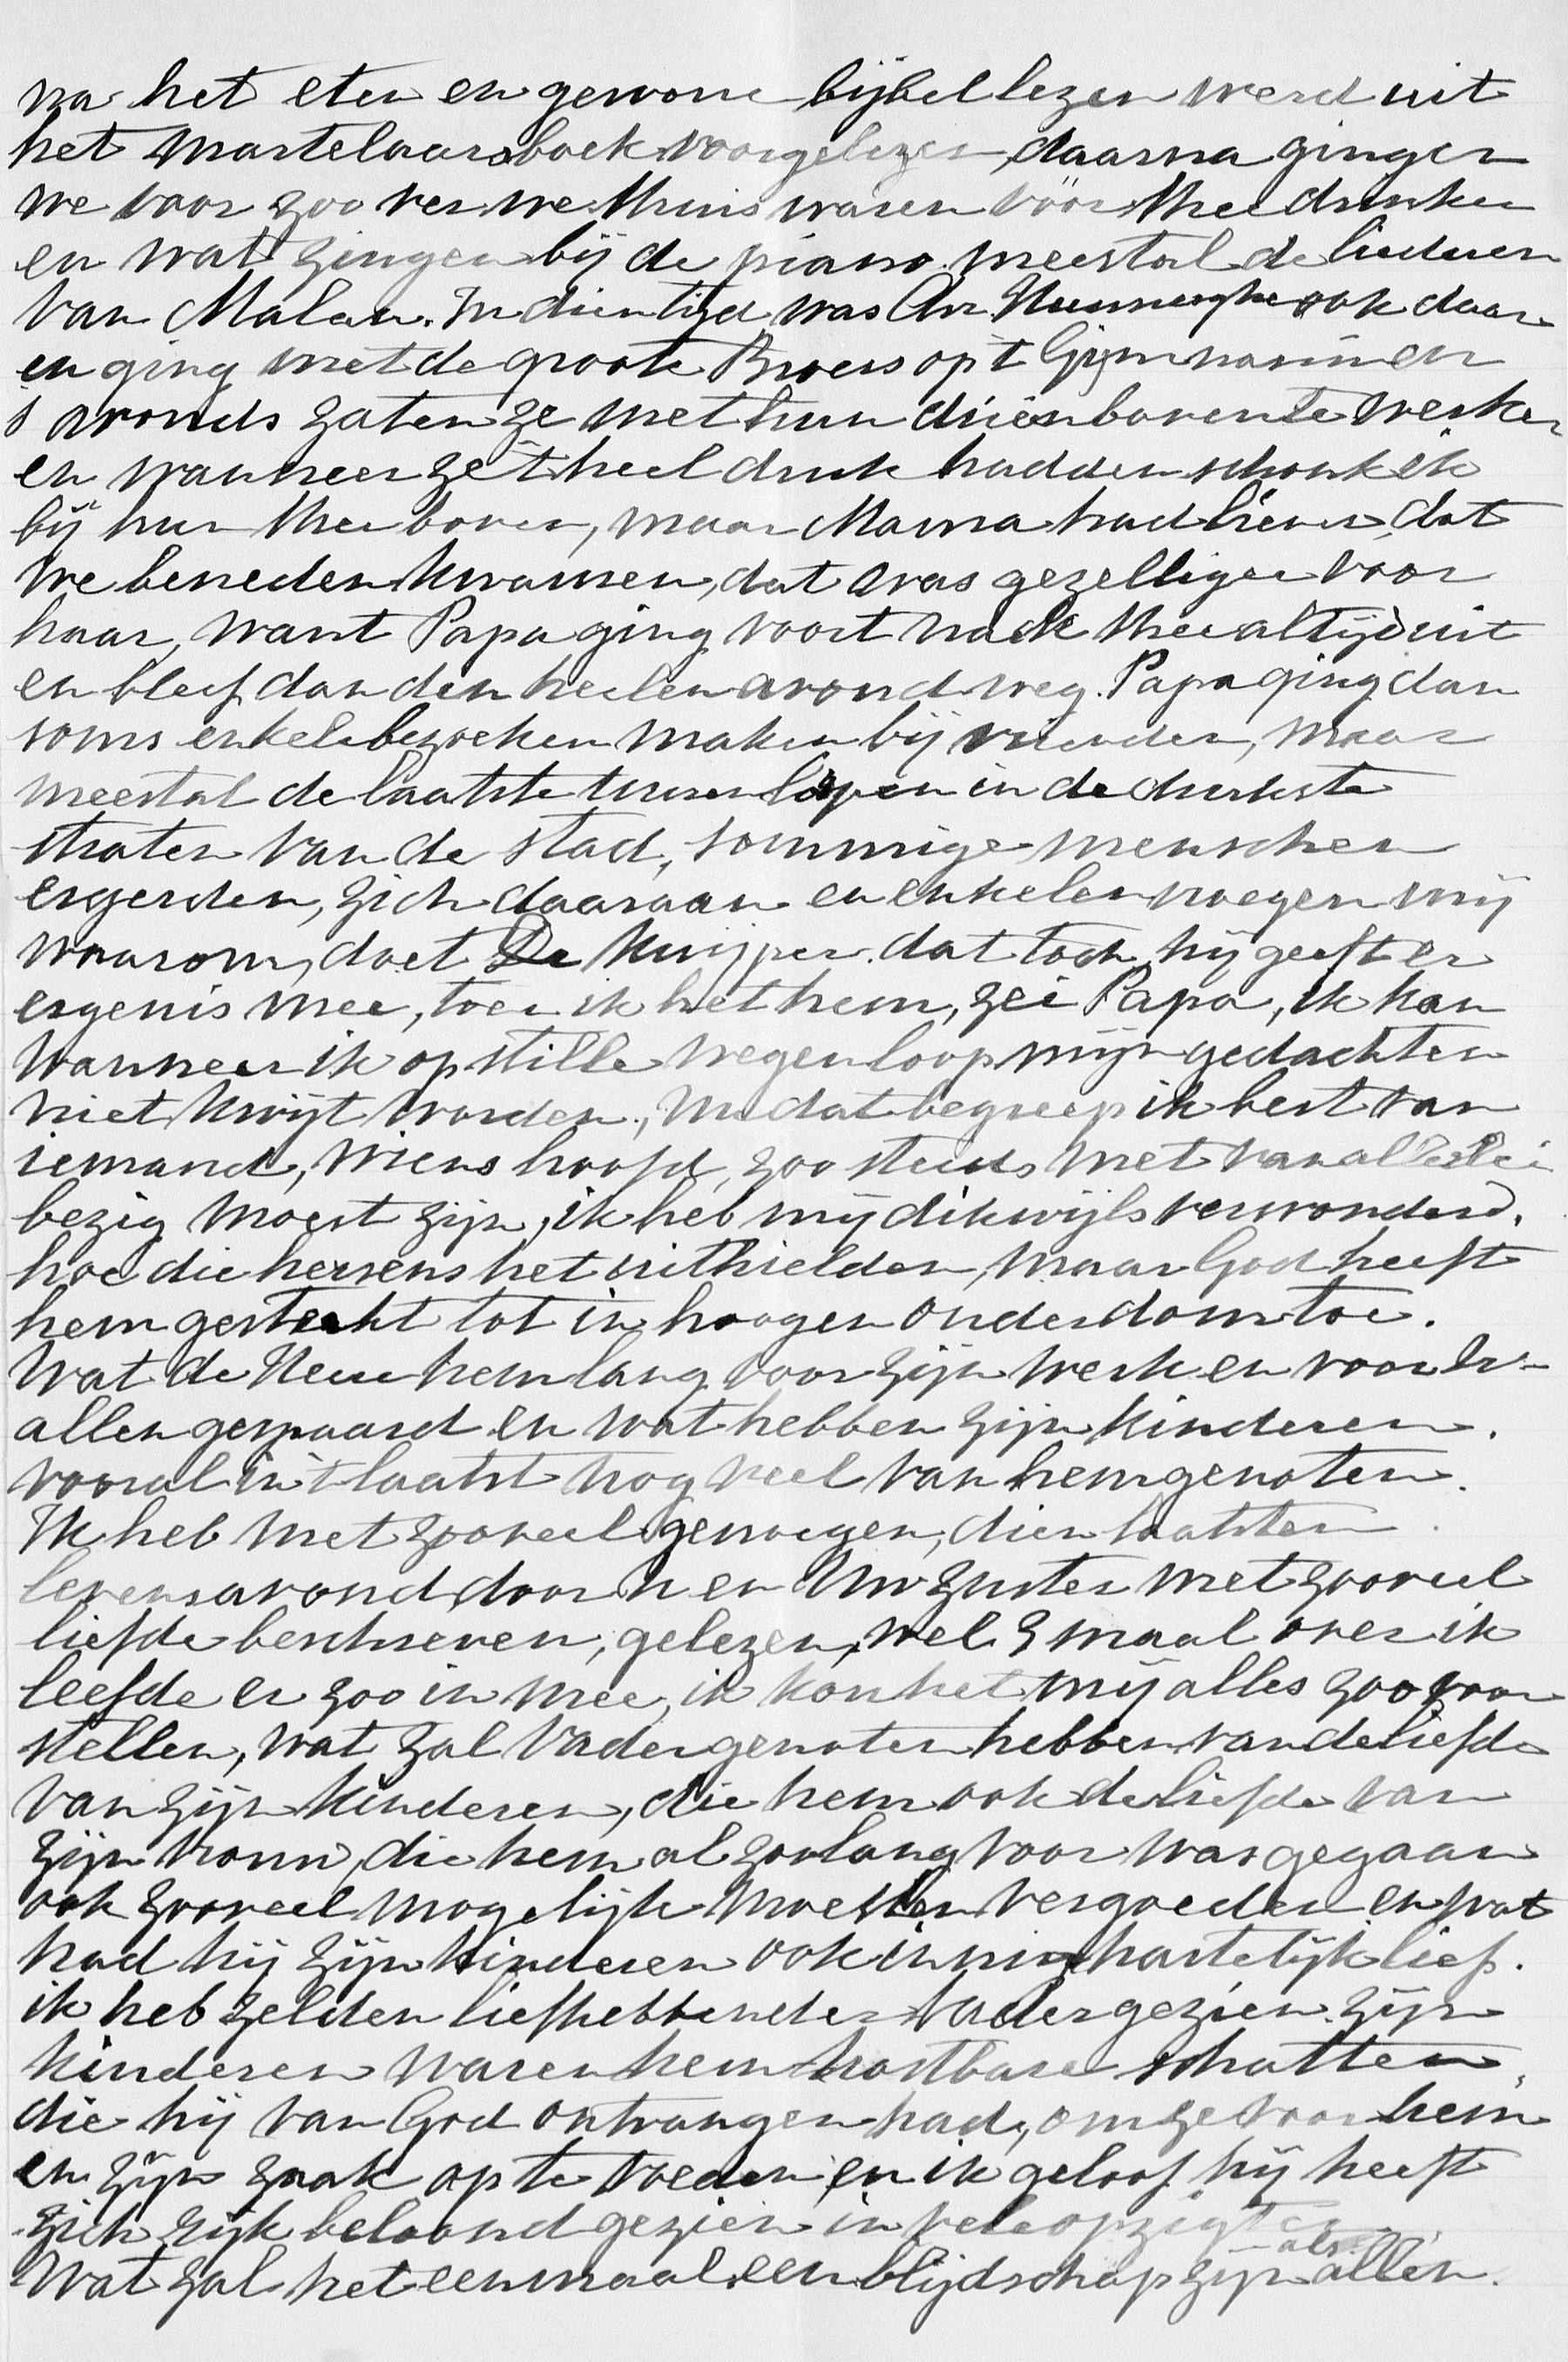 na het eten en gewone bijbellezen werd uit
het martelaarsboek voorgelezen, daarna gingen
we voor zoo ver we thuis waren vóór thee drinken
en wat zingen bij de piano meestal de liederen
van Malan. In dien tijd was Chr. ook daar
en ging met de groote Broers op 't Gijmnasium en
s avonds zaten ze met hun drieën boven te werken
en wanneer ze 't heel druk hadden schonk ik
bij hun thee boven, maar Mama had liever dat
we beneden kwamen, dat was gezelliger voor
haar, want Papa ging voort na de thee altijd uit
en bleef dan den heelen avond weg. Papa ging dan
soms enkele bezoeken maken bij vrienden, maar
meestal de laatste uren lopen in de drukste
straten van de stad, sommige menschen
ergerden, zich daaraan en enkelen vroegen mij
waarom, doet Dr Kuijper dat toch, hij geeft er
ergenis mee, toen ik het hem, zei Papa, ik kan
wanneer ik op stille wegen loop mijn gedachten
niet kwijt worden, nu dat begreep ik best van
iemand, wiens hoofd, zoo steeds met van allerlei
bezig moest zijn, ik heb mij dikwijls verwonderd,
hoe die hersens het uithielden, maar God heeft
hem gesterkt tot in hoogen ouderdom toe.
Wat de Heere hem lang voor zijn werk en voor u
allen gespaard en wat hebben zijn kinderen.
vooral in 't laatst nog veel van hem genoten.
Ik heb met zooveel genoegen, dien laatsten
levensavond door u en Uw zuster met zooveel
liefde beschreven, gelezen, wel 3 maal over ik
leefde er zoo in mee, ik kon het mij alles zoo voor
stellen, wat zal Vader genoten hebben van de liefde
van zijn kinderen, die hem ook de liefde van
zijn vrouw, die hem al zoolang voor was gegaan
ook zooveel mogelijk moesten vergoeden en wat
had hij zijn kinderen ook innig hartelijk lief.
ik heb zelden liefhebbender Vader gezien. zijn
kinderen waren hem kostbare schatten,
die hij van God ontvangen had, om ze voor hem
en zijn zaak op te voeden en ik geloof hij heeft
zich rijk beloond gezien in vele opzigten
Wat zal het eenmaal een blijdschap zijn als allen.